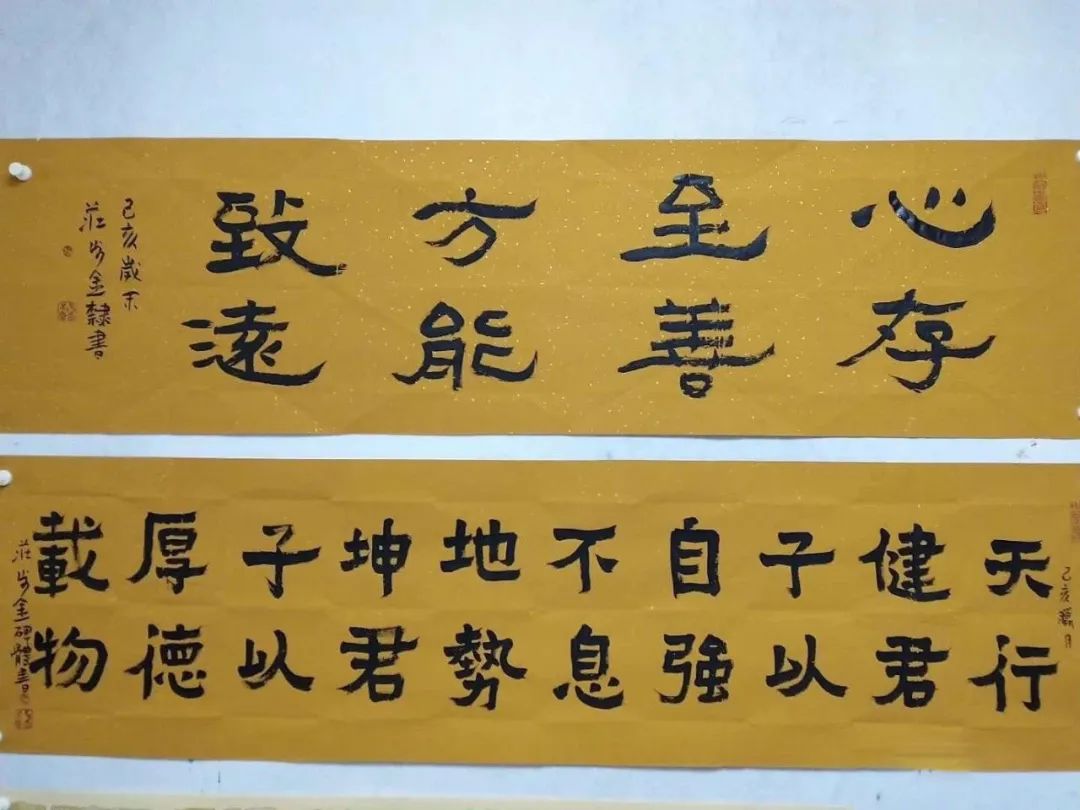 心存
至善
方能
致遠
己亥歲末
莊步金隸書
己亥臘月
天行
健君
子以
自強
不息
地勢
坤君
子以
厚德
載物
莊步金碑體書